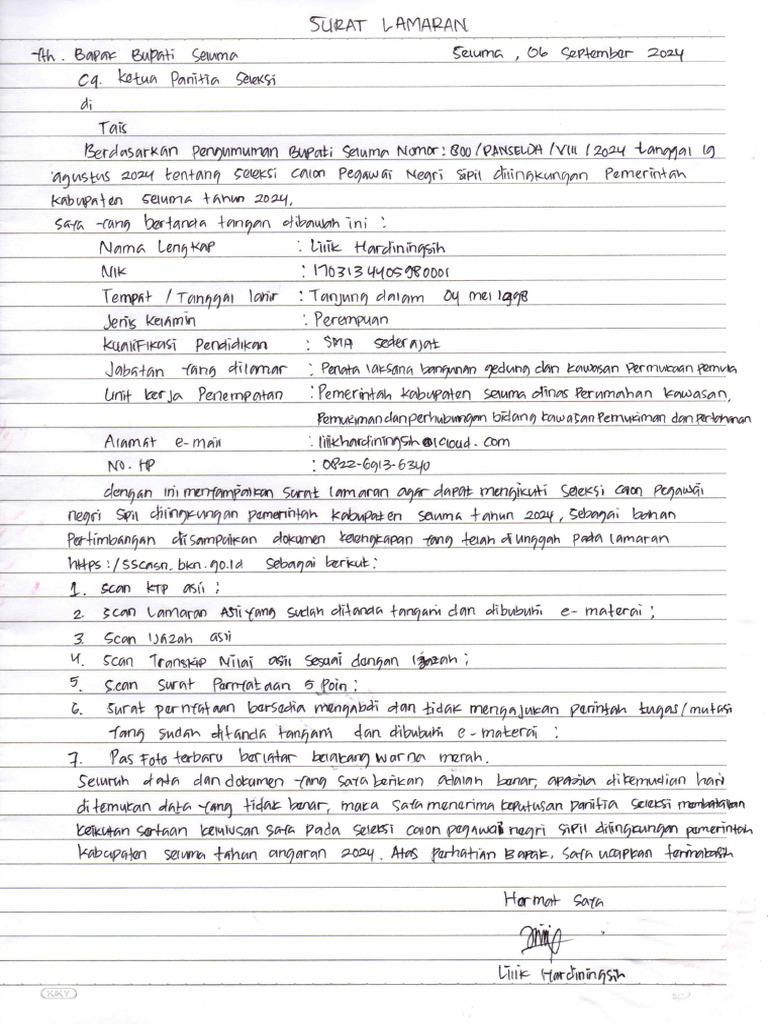 SURAT LAMARAN
Yth. Bapak Bupati Seluma Seluma, 06 September 2024
Cq. Ketua Panitia Seleksi
di
Tais
Berdasarkan Pengumuman Bupati Seluma Nomor: 800/PANSELDA/VIII/2024 tanggal 19
agustus 2024 tentang seleksi Calon Pegawai Negri Sipil dilingkungan Pemerintah
Kabupaten Seluma tahun 2024,
Saya Yang bertanda tangan dibawah ini :
Nama Lengkap : Lilik Hardiningsih
NIK : 1703134405980001
Tempat / Tanggal lahir : Tanjung dalam 04 mei 1998
Jenis Kelamin : Perempuan
Kualifikasi Pendidikan : SMA sederajat
Jabatan Yang dilamar : Penata laksana bangunan gedung dan kawasan Permukaan Pemula
Unit kerja Penempatan : Pemerintah Kabupaten seluma dinas Perumahan Kawasan,
Pemukiman dan perhubungan bidang kawasan Pemukiman dan Pertanahan
Alamat e-mail : lilikhardiningsih@icloud.com
No. HP : 0822-6913-6340
dengan ini menyampaikan Surat lamaran agar dapat mengikuti seleksi calon pegawai
negri sipil dilingkungan pemerintah Kabupaten seluma tahun 2024, sebagai bahan
Pertimbangan disampaikan dokumen kelengkapan Yang telah diunggah pada lamaran
https:/sscasn.bkn.go.id sebagai berikut:
1. Scan KTP asli ;
2. Scan Lamaran Asli Yang sudah ditanda tangani dan dibubuhi e-materai ;
3. Scan Ijazah asli
4. Scan Transkip Nilai asli sesuai dengan Ijazah ;
5. Scan Surat Pernyataan 5 Poin ;
6. Surat pernyataan bersedia mengabdi dan tidak mengajukan perintah tugas/mutasi
Yang sudah ditanda tangani dan dibubuhi e-materai ;
7. Pas Foto terbaru berlatar belakang warna merah.
Seluruh data dan dokumen Yang saya berikan adalah benar, apabila dikemudian hari
ditemukan data Yang tidak benar, maka saya menerima keputusan panitia seleksi membatalkan
keikutan sertaan kelulusan saya pada seleksi calon pegawai negri sipil dilingkungan pemerintah
Kabupaten seluma tahun angaran 2024. Atas Perhatian Bapak, saya ucapkan terimakasih
Hormat Saya
Lilik Hardiningsih
KKY